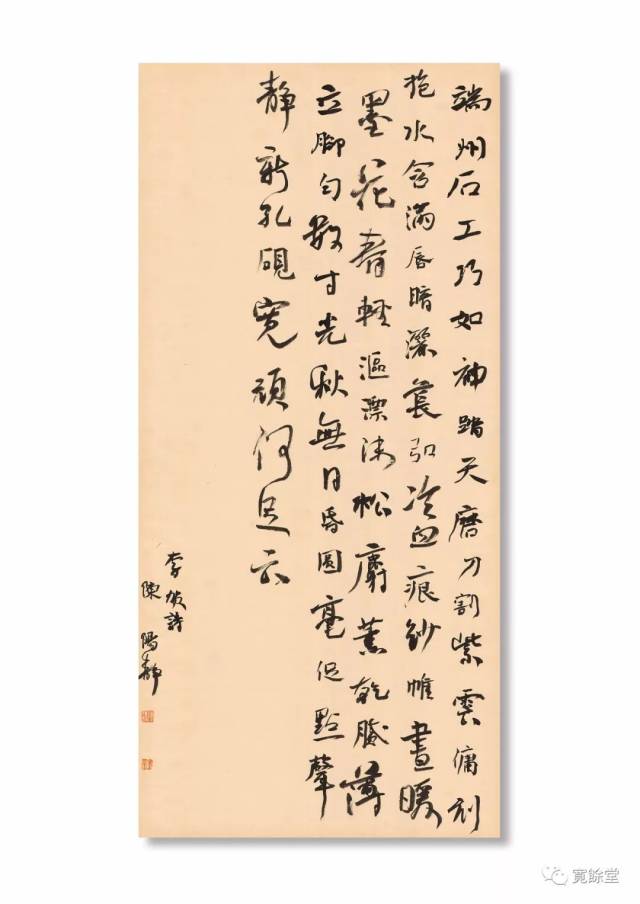 端州石工巧如神踏天磨刀割紫雲傭刓
抱水含滿唇暗灑萇弘冷血痕紗帷晝暖
墨花春輕漚漂沫松麝薰乾膩薄
立腳勻數寸光秋無日昏圓毫促點聲
靜新孔硯寬頑何足云
李賀詩
陳陽靜
寬餘堂